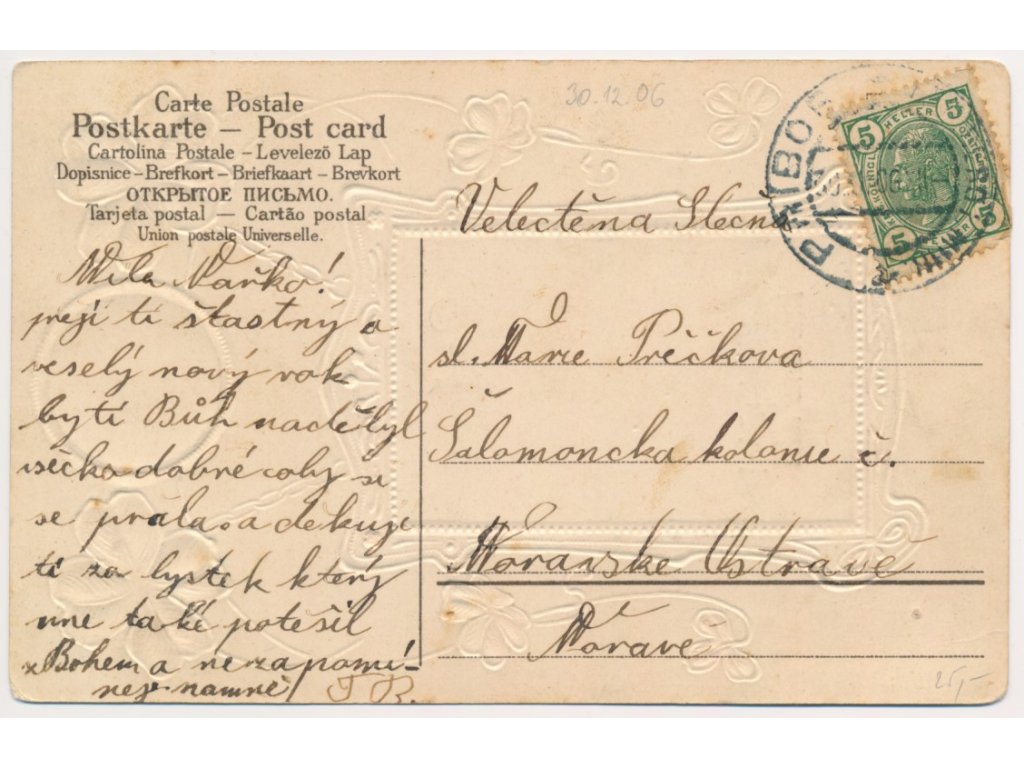 30.12.06
Carte Postale
Postkarte – Post card
Cartolina Postale – Levelező Lap
Dopisnice – Brefkort – Briefkaart – Brevkort
ОТКРЫТОЕ ПИСЬМО.
Tarjeta postal – Cartão postal
Union postale Universelle.
Mila Mařko!
přeji ti štastný a
veselý nový rok
by ti Bůh nadělyl
všecko dobré coby si
se prala. a děkuje
ti za lystek který
mne také potěšil
z Bohem a nezapomí-
nej namne
F B.
Velectěna Slečna
sl. Marie Prěčkova
Šalomoncka kolonie č.
Moravske Ostravě
Moravě
PŘÍBOR
5 KELLER 5
5 5
25,-